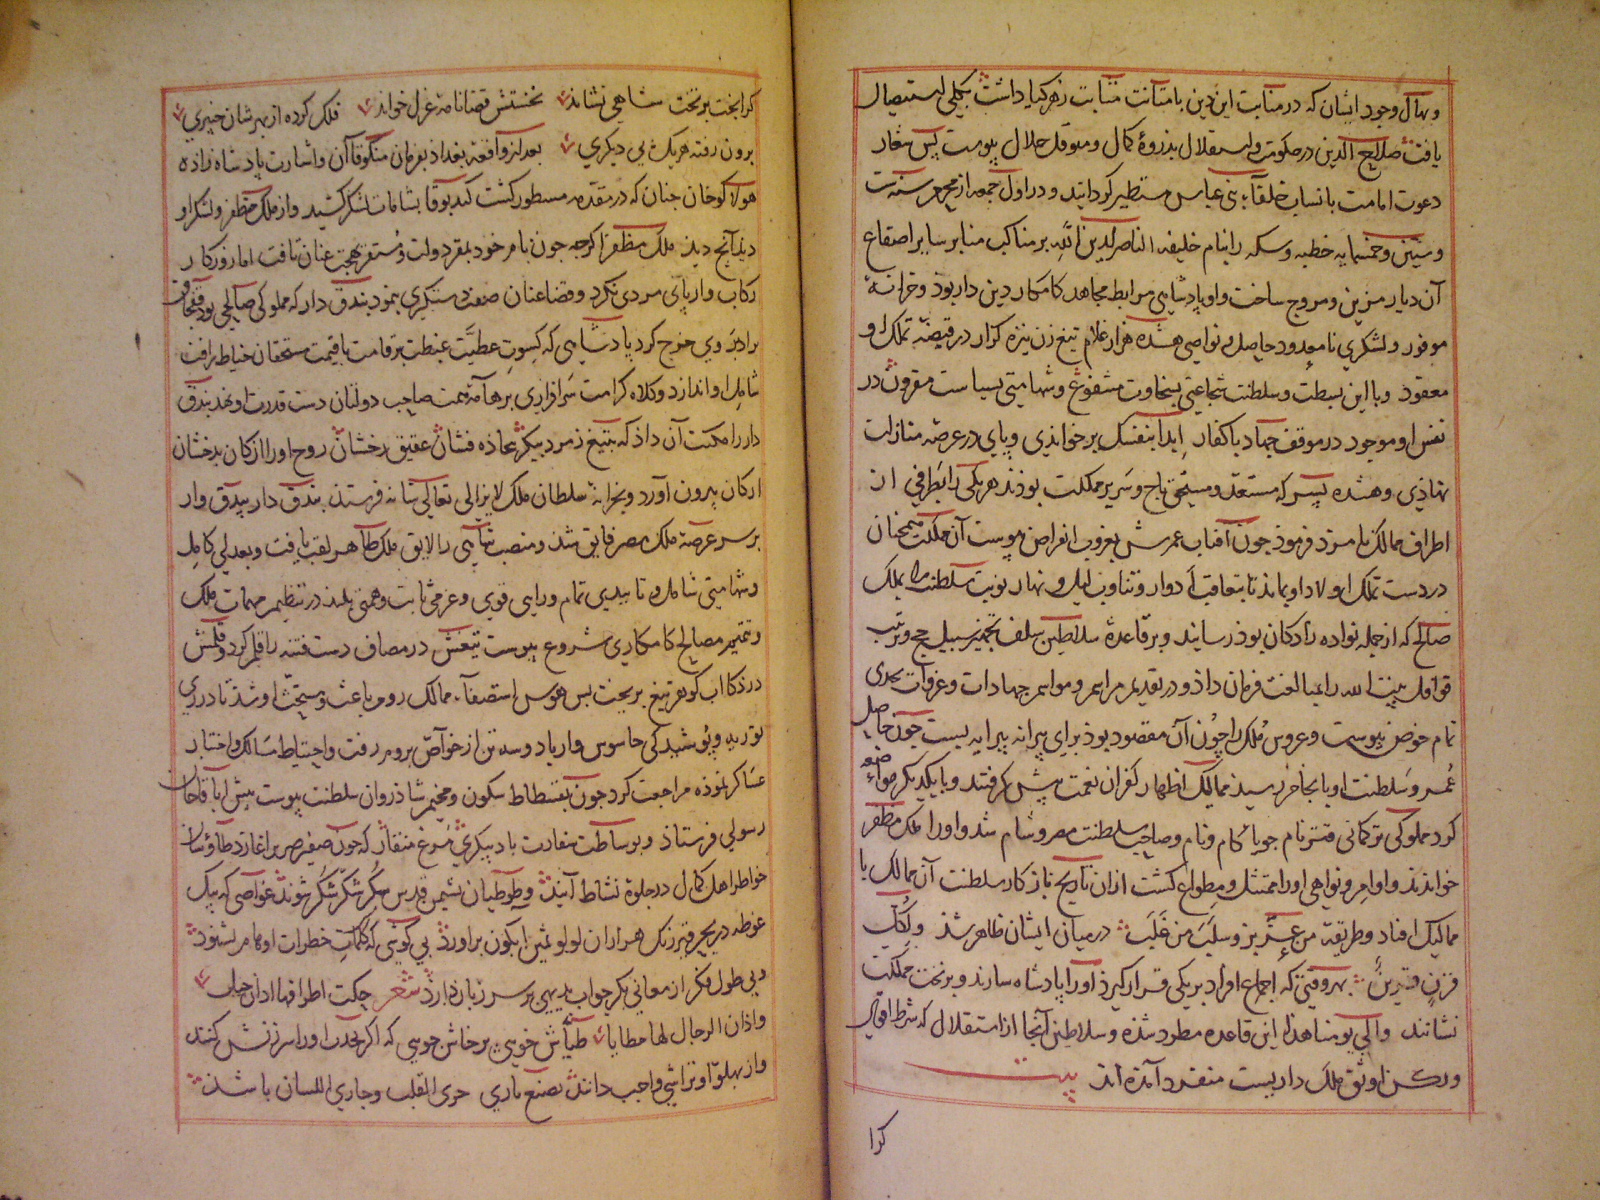 و نهال وجود ایشان که در منابت این دین بامتانت متابت زهر کیا داشت بکلی استیصال
یافت صلاح الدین در حکومت و استقلال بذروهٔ کمال و متوقل جلال پیوست پس شعار
دعوت امامت بانساب خلفاء بنی عباس مستظهر کردانید و در اول جمعه از محرم سنه ست
و ستین و خمسمایه خطبه و سکه را بنام خلیفه الناصر لدین الله بر مناکب منابر سایر اصقاع
آن دیار مزین و مروج ساخت و او پادشاهی مرابط مجاهد کامکار دین دار بوذ و خزانهٔ
موفور و لشکری نامعدود حاصل و نواصی هشده هزار غلام تیغ زن نیزه کزار در قبضهٔ تملک او
معقود و با این بسطت و سلطنت شجاعتی بسخاوت مشفوع و شهامتی بسیاست مقرون در
نفس او موجود در موقف جهاد با کفار ابدا بنفسک برخواندی و پای در عرصهٔ منازلت
نهاذی و هشده پسر که مستعد و مستحق تاج و سریر مملکت بوذند هر یکی را بطرفی از
اطراف ممالک نامزد فرموذ جون آفتاب عمرش بغروب انقراض پیوست آن ملکت همجنان
در دست تملک اولاد او بماند تا بتعاقب ادوار و تناوب لیل و نهار نوبت سلطنت بملک
صالح که از جمله نواده زادکان بوذ رسانید و بر قاعدهٔ سلاطین سلف تجهیز سبیل حج و ترتیب
قوافل بیت الله را مبالغت فرمان داذ و در تقدیم مراسم و مواسم جهادات و غزوات بجدی
تمام خوض پیوست و عروس ملک را چون آن مقصود بوذ برای پیرانه پیرایه بست جون حاصل
عمر و سلطنت او بانجاز رسید ممالیک اظهار کفران نعمت پیش کرفتند و با یکدیکر مواضعه
کرد مملوکی ترکمانی قتز نام جویا کام و نام و صاحب سلطنت مصر و شام شد و او را ملک مظفر
خواندند و اوامر و نواهی او را ممتثل و مطواع کشت ازان تاریخ باز کار سلطنت آن ممالک با
ممالیک افتاد و طریقهٔ من عز بز و سلب من غلب در میان ایشان ظاهر شذ و لکل
قرن قرین بهر وقتی که اجماع افراد بر یکی قرار کیرذ او را پادشاه سازند و بر تخت مملکت
نشانند و الی یومنا هذا این قاعده مطرد شذه و سلاطین آنجا از استقلال که شرط اقوی
و رکن اوثق ملک داریست منفرد آمذه اند بیت
کرا
کرا بخت بر تخت شاهی نشاند نخستش قضا نامهٔ عزل خواند فلک کرده از بهر شان خیبری
برون رفته هر یک پی دیکری بعد از واقعهٔ بغداد بفرمان منکوقاآن و اشارت پادشاه زاده
هولاکو خان جنان که در مقدمه مسطور کشت کیدبوقا بشامات لشکر کشید و از ملک مظفر و لشکر او
دید آنج دید ملک مظفر اکرجه جون نام خود بمقر دولت و مستقر بهجت عنان تافت اما روزکار
رکاب وار پای مردی نکرد و قضا عنان صفت دستکیری ننمود بندق دار که مملوکی صالحی بود قفجاق
برادر وی خروج کرد پادشاهی که کسوت عطیت غبطت بر قامت با قیمت مستحقان خیاط رافت
شامل او اندازد و کلاه کرامت سرافرازی بر هامهٔ همت صاحب دولتان دست قدرت او نهد بندق
دار را مکنت آن داذ که بتیغ زمرد پیکر بجاذه فشان عقیق رخشان روح او را از کان بدخشان
ارکان بیرون آورد و بخزانهٔ سلطان ملک لایزالی تعالی شانه فرستذ بندق دار بیدق وار
بر سر عرصهٔ ملک مصر فایق شذ و منصب شاهی را لایق ملک طاهر لقب یافت و بعدلی کامل
و شهامتی شامل و تاییدی تمام و رایی قوی و عزمی ثابت و همتی بلند در تنظیم مهمات ملک
و تتمیم مصالح کامکاری شروع پیوست تیغش در مصاف دست فتنه را قلم کرد و کلکش
در ذکا آب کوهر تیغ بریخت پس هوس استصفاء ممالک روم باعث و مستحث او شذ تا در زی
توزیه و پوشیدکی جاسوس وار با دو سه تن از خواص بروم رفت و احتیاط مسالک و اختبار
عساکر نموذه مراجعت کرد جون بفسطاط سکون و مخیم شاذروان سلطنت پیوست پیش اباقاخان
رسولی فرستاذ و بوساطت سفارت باد پیکری مرغ منقار که جون صفیر صریر اغازد طاوسان
خواطر اهل کمال در جلوهٔ نشاط آیند و طوطیان نشیمن قدس شکر شکر شکر شوند غواصی که بیک
غوطه در بحر قیر رنک هزاران لولو ثمین ار بکون براورذ بی کوشی که کلمات خطرات اوهام بشنوذ
و بی طول فکر از معانی بکر جواب بدیهی بر سر زبان دارذ شعر حکت اطرافها اذان خیل
و اذان الرجال لها مطایا طیاش خویی بر خاش جویی که اکر بخدراو را سرزنش کنند
و از پهلو او تراشی واجب دانند بصنع باری حری القلب و جاری اللسان باشذ